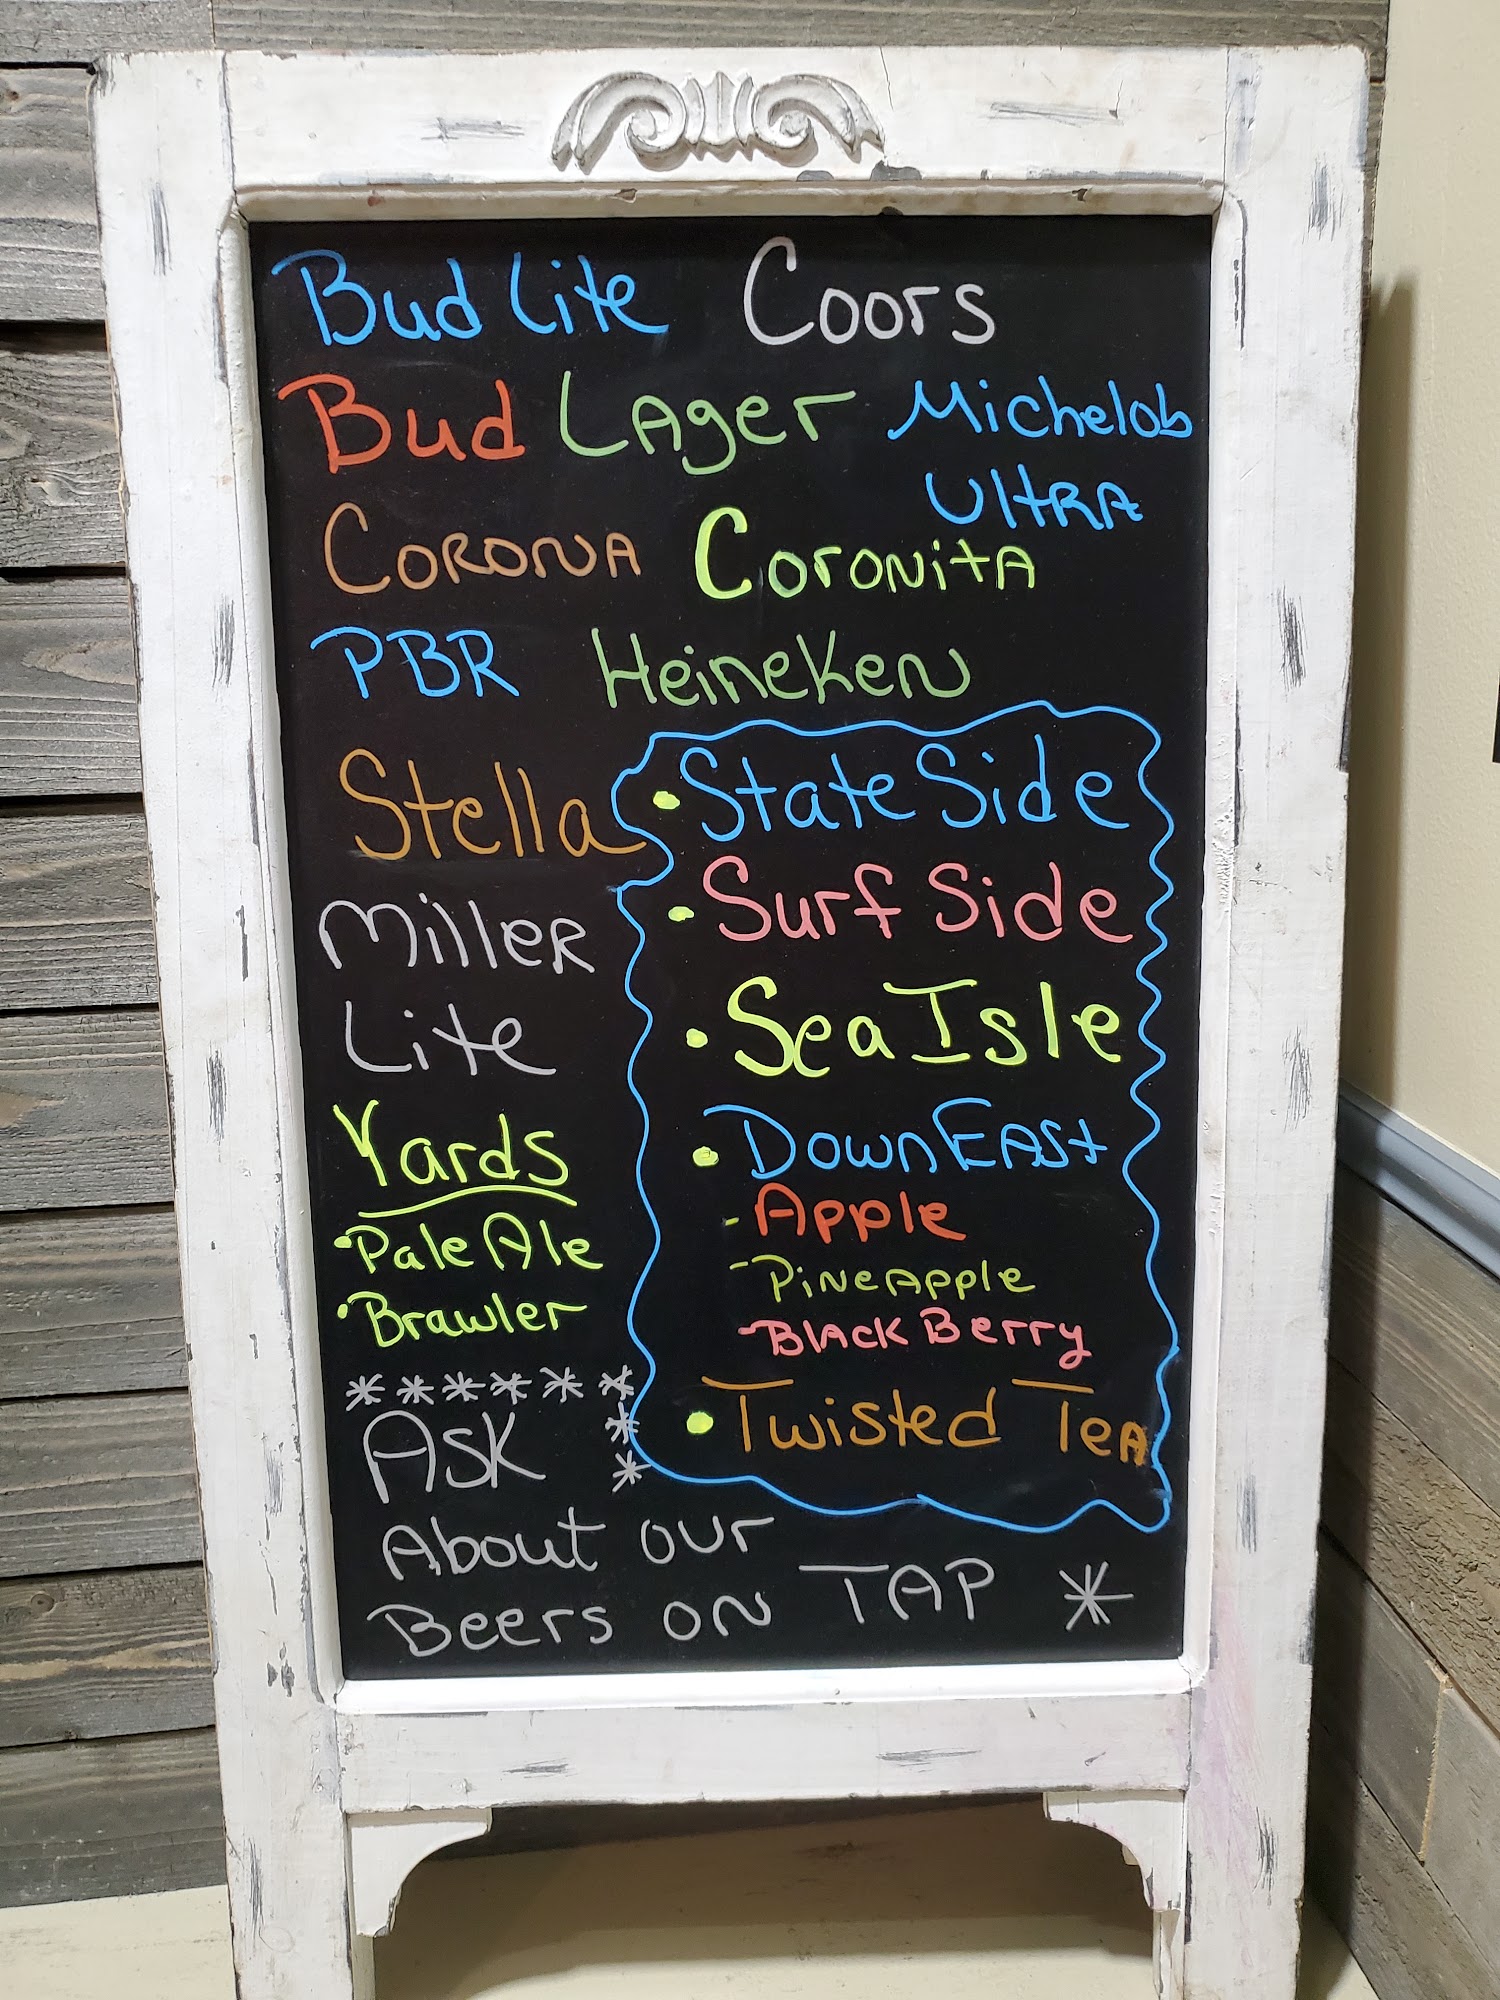 Bud Lite Coors
Bud Lager Michelob
Ultra
Corona Coronita
PBR Heineken
Stella
Miller
Lite
Yards
• Pale Ale
• Brawler
• State Side
• Surf Side
• Sea Isle
• Down East
- Apple
- Pineapple
- Black Berry
• Twisted Tea
* * * * * *
Ask *
*
About our
Beers on TAP *